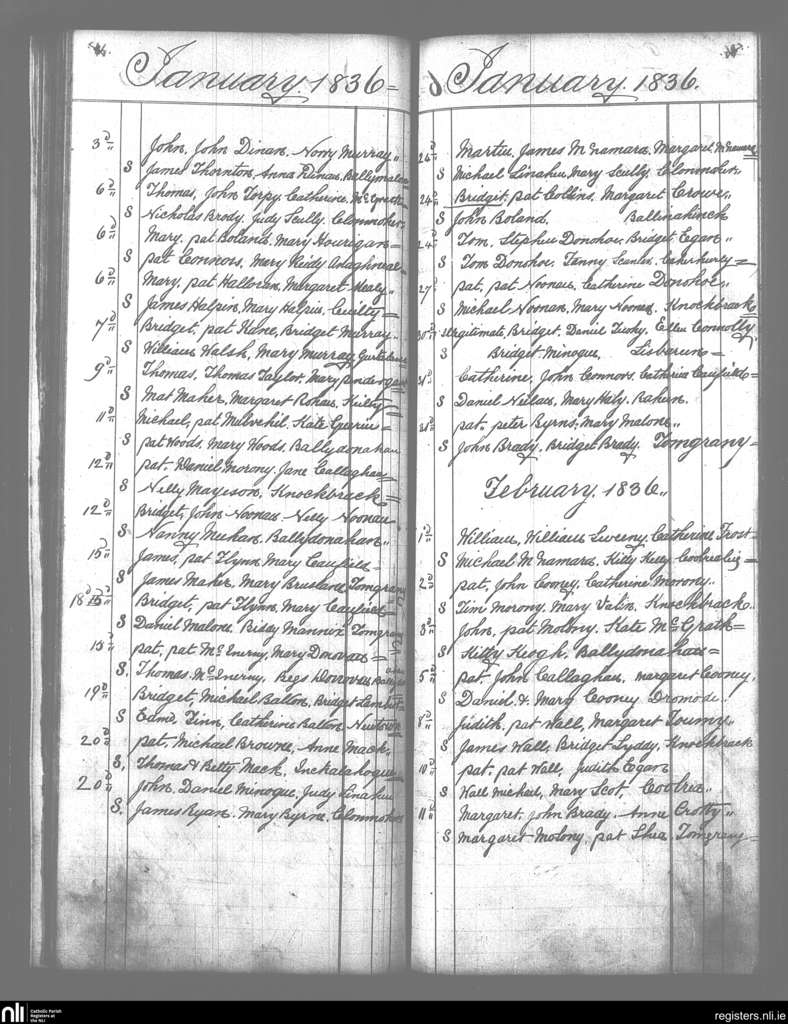 January. 1836 =
3d John, John Dinan. Nory Murray "
S James Thornton, Anna Dinan, Ballymalone
6d Thomas, John Torpy, Catherine McGrath
S Nicholas Brody, Judy Scully, Clonmoher
6d Mary, pat Boland, Mary Houregan =
S pat Connors, Mary Reidy
6d Mary, pat Halloran, Margaret Healy "
S James Halpin, Mary Halpin, Cuilty =
7d Bridget, pat Kane, Bridget Murray "
S William Walsh, Mary Murray,
9d Thomas, Thomas Taylor, Mary
S Mat Maher, Margaret Rohan, Kilty =
11d Michael, pat Mulvehil, Kate Guerin =
S pat Woods, Mary Woods, Ballydonahan
12d pat, Daniel Morony, Jane Callaghan =
S Nelly Knockbrack =
12d Bridget, John Noonan, Nelly Noonan
S Nanny Meehan, Ballydonahan "
15d James, pat Flynn, Mary Caufield =
S James Maher, Mary Tomgrany
18d Bridget, pat Flynn, Mary Caufield =
S Daniel Malone, Biddy Mannix, Tomgrany
15d pat, pat McInerny, Mary Donovan =
S, Thomas McInerny, Begs Donovan
19d Bridget, Michael Balton, Bridget
S Edmd. Finn, Catherine Balton, Newtown
20d pat, Michael Browne, Anne Mack "
S, Thomas & Betty Mack,
20d John, Daniel Minogue, Judy Linahan
S. James Ryan, Mary Byrne, Clonmoher
January. 1836.
24d Martin, James McNamara, Margaret McNamara
S Michael Linahan, Mary Scully, Clonmoher
24d Bridget, pat Collins, Margaret Crowe "
S John Boland, Ballinahinch
24d Tom, Stephen Donohoe, Bridget Egan "
S Tom Donohoe, Fanny Scanlan, Caherhurly =
27d pat, pat Noonan, Catherine Donohoe "
S Michael Noonan, Mary Noonan, Knockbrack
30d illegitimate, Bridget, Daniel Tuohy, Ellen Connolly
S Bridget Minogue, Lisbarun =
31d Catherine, John Connors, Catherine Caufield =
S Daniel Neilan, Mary Haly, Raheen
31d pat, peter Byrns, Mary Malone "
S John Brady, Bridget Brady, Tomgrany =
February. 1836 "
1d William, William Sweeny, Catherine Frost =
S Michael McNamara, Kitty Kelly, Coolreabeg =
2d pat, John Cooney, Catherine Morony "
S Tim Morony, Mary Knockbrack "
3d John, pat Molony, Kate McGrath =
S Kitty Keogh, Ballydonahan =
5d pat, John Callaghan, Margaret Cooney,
S Daniel & Mary Cooney, Dromode "
8d Judith, pat Wall, Margaret Toumy "
S James Wall, Bridget Lyddy, Knockbrack
10d pat, pat Wall, Judith Egan
S Wall Michael, Mary Scot, Coolrea "
11d Margaret, John Brady, Anne Crotty "
S Margaret Molony, pat Shea, Tomgrany =
nli Catholic Parish
Registers at
the NLI
registers.nli.ie